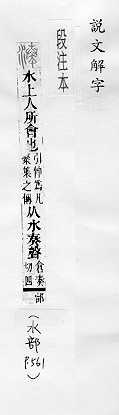 說文解字
段注本
湊水上人所會也引伸爲凡聚集之偁从水奏聲倉奏切四部
（水部P561）